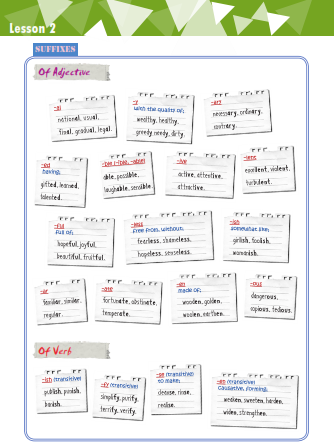 Lesson 2
SUFFIXES
Of Adjective
-al
national, usual,
final, gradual, legal.
-y
with the quality of;
wealthy, healthy,
greedy, needy, dirty.
-ary
necessary, ordinary,
contrary.
-ed
having;
gifted, learned,
talented.
-ble (-ible, -able)
able, possible,
laughable, sensible.
-ive
active, attentive,
attractive.
-ent
excellent, violent,
turbulent.
-ful
full of;
hopeful, joyful,
beautiful, fruitful.
-less
free from, without;
fearless, shameless,
hopeless, senseless.
-ish
somewhat like;
girlish, foolish,
womanish.
-ar
familiar, similar,
regular.
-ate
fortunate, obstinate,
temperate.
-en
made of;
wooden, golden,
woolen, earthen.
-ous
dangerous,
copious, tedious.
Of Verb
-ish (transitive)
publish, punish,
banish.
-fy (transitive)
simplify, purify,
terrify, verify.
-se (transitive)
to make;
cleanse, rinse,
realise.
-en (transitive)
causative, forming;
weaken, sweeten, harden,
widen, strengthen.